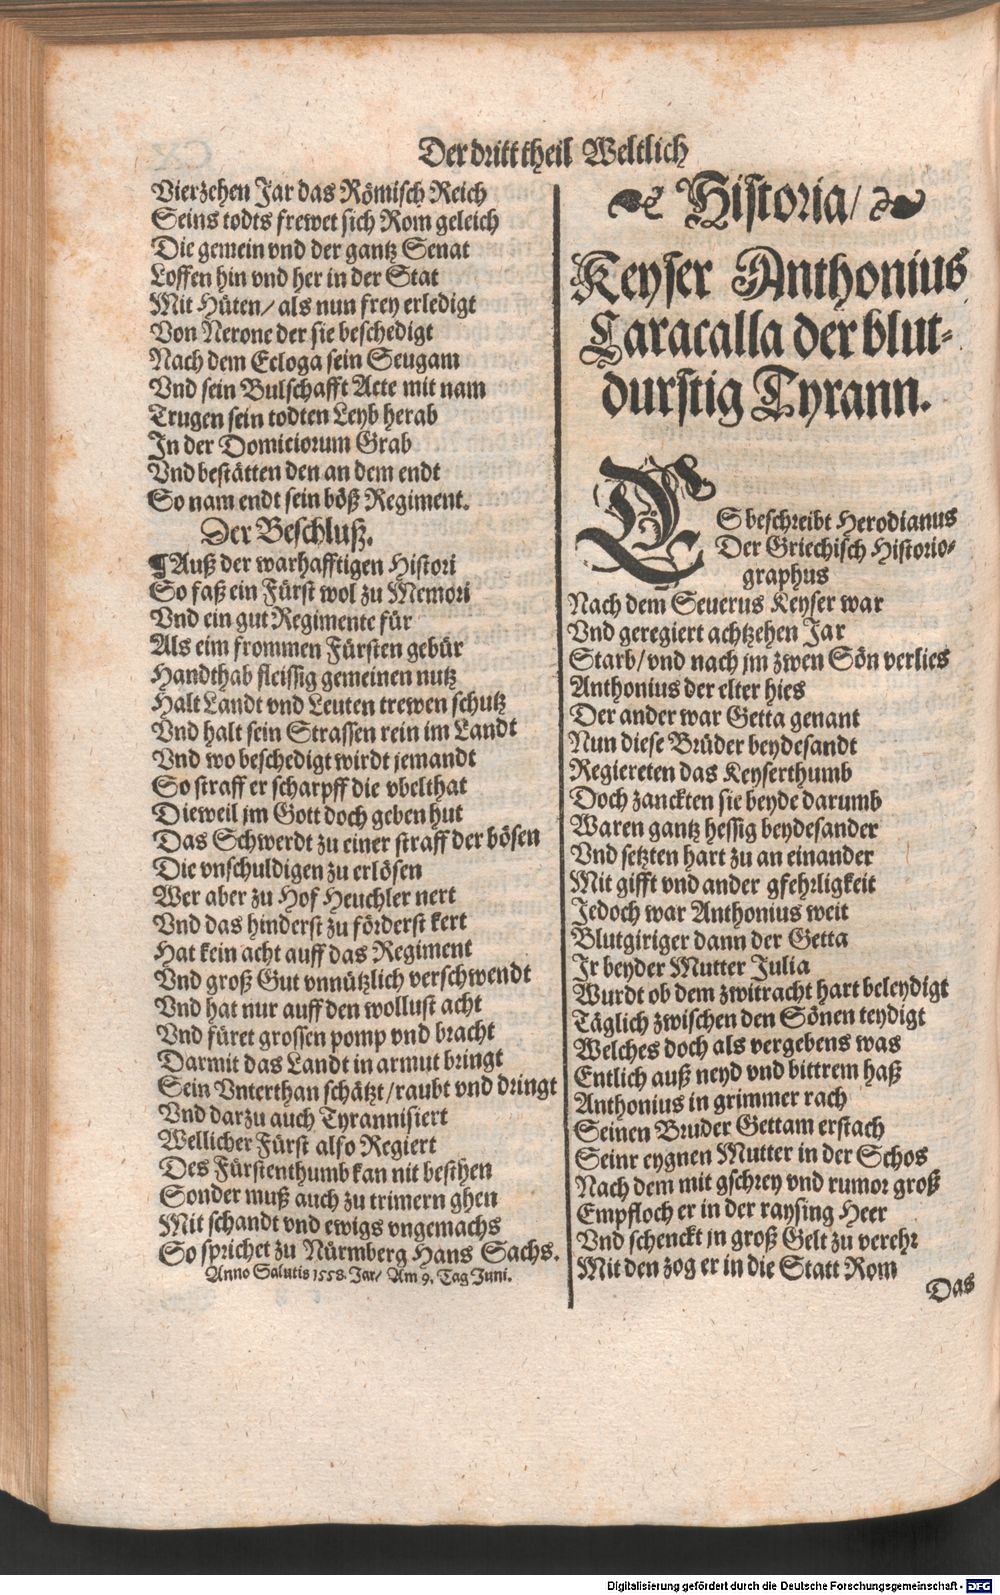 Der dritt theil Weltlich
Vierzehen Jar das Römisch Reich
Seins todts frewet sich Rom geleich
Die gemein vnd der gantz Senat
Loffen hin vnd her in der Stat
Mit Hüten/ als nun frey erledigt
Von Nerone der sie beschedigt
Nach dem Ecloga sein Seugam
Vnd sein Bulschafft Acte mit nam
Trugen sein todten Leyb herab
In der Domiciorum Grab
Vnd bestätten den an dem endt
So nam endt sein böß Regiment.
Der Beschluß.
¶Auß der warhafftigen Histori
So faß ein Fürst wol zu Memori
Vnd ein gut Regimente für
Als eim frommen Fürsten gebür
Handthab fleissig gemeinen nutz
Halt Landt vnd Leuten trewen schutz
Vnd halt sein Strassen rein im Landt
Vnd wo beschedigt wirdt jemandt
So straff er scharpff die vbelthat
Dieweil jm Gott doch geben hut
Das Schwerdt zu einer straff der bösen
Die vnschuldigen zu erlösen
Wer aber zu Hof Heuchler nert
Vnd das hinderst zu förderst kert
Hat kein acht auff das Regiment
Vnd groß Gut vnnützlich verschwendt
Vnd hat nur auff den wollust acht
Vnd füret grossen pomp vnd bracht
Darmit das Landt in armut bringt
Sein Vnterthan schätzt/raubt vnd dringt
Vnd darzu auch Tyrannisiert
Wellicher Fürst also Regiert
Des Fürstenthumb kan nit besthen
Sonder muß auch zu trimern ghen
Mit schandt vnd ewigs vngemachs
So sprichet zu Nürmberg Hans Sachs.
Anno Salutis 1558. Jar/ Am 9. Tag Juni.
Historia/
Keyser Anthonius
Caracalla der blut-
durstig Tyrann.
ES beschreibt Herodianus
Der Griechisch Historio-
graphus
Nach dem Seuerus Keyser war
Vnd geregiert achtzehen Jar
Starb/vnd nach jm zwen Sön verlies
Anthonius der elter hies
Der ander war Getta genant
Nun diese Brüder beydesandt
Regiereten das Keyserthumb
Doch zanckten sie beyde darumb
Waren gantz hessig beydesander
Vnd setzten hart zu an einander
Mit gifft vnd ander gfehrligkeit
Jedoch war Anthonius weit
Blutgiriger dann der Getta
Ir beyder Mutter Julia
Wurdt ob dem zwitracht hart beleydigt
Täglich zwischen den Sönen teydigt
Welches doch als vergebens was
Entlich auß neyd vnd bittrem haß
Anthonius in grimmer rach
Seinen Bruder Gettam erstach
Seinr eygnen Mutter in der Schos
Nach dem mit gschrey vnd rumor groß
Empfloch er in der raysing Heer
Vnd schenckt jn groß Gelt zu verehr
Mit den zog er in die Statt Rom
Das
Digitalisierung gefördert durch die Deutsche Forschungsgemeinschaft - DFG